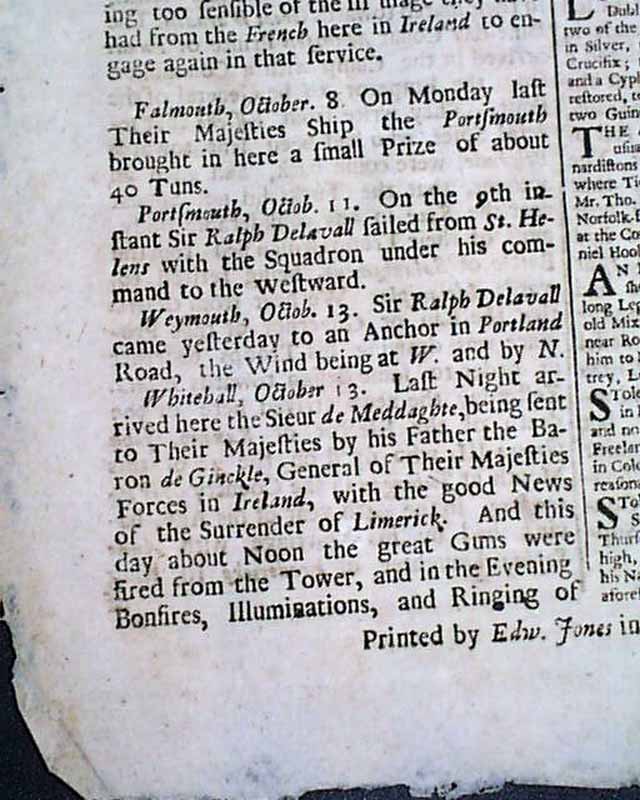 ing too ſenſible of the ill uſage they have
had from the French here in Ireland to en-
gage again in that ſervice.
Falmouth, October. 8 On Monday laſt
Their Majeſties Ship the Portſmouth
brought in here a ſmall Prize of about
40 Tuns.
Portſmouth, Octob. 11. On the 9th in-
ſtant Sir Ralph Delavall ſailed from St. He-
lens with the Squadron under his com-
mand to the Weſtward.
Weymouth, Octob. 13. Sir Ralph Delavall
came yeſterday to an Anchor in Portland
Road, the Wind being at W. and by N.
Whitehall, October 13. Laſt Night ar-
rived here the Sieur de Meddaghte, being ſent
to Their Majeſties by his Father the Ba-
ron de Ginckle, General of Their Majeſties
Forces in Ireland, with the good News
of the Surrender of Limerick. And this
day about Noon the great Guns were
fired from the Tower, and in the Evening
Bonfires, Illuminations, and Ringing of
Printed by Edw. Jones in
Dubl
two of the
in Silver,
Crucifix;
and a Cyp
reſtored, t
two Guin
THE
uſu
nardiſtons
where Ti
Mr. Tho.
Norfolk-
at the Co
niel Hool
AN
ſh
long Leg
old Miz
near Ro
him to
trey, L
STole
in
and no
Freelar
in Cole
reaſona
STo
S
Thurſ
high,
his N
aforeſ